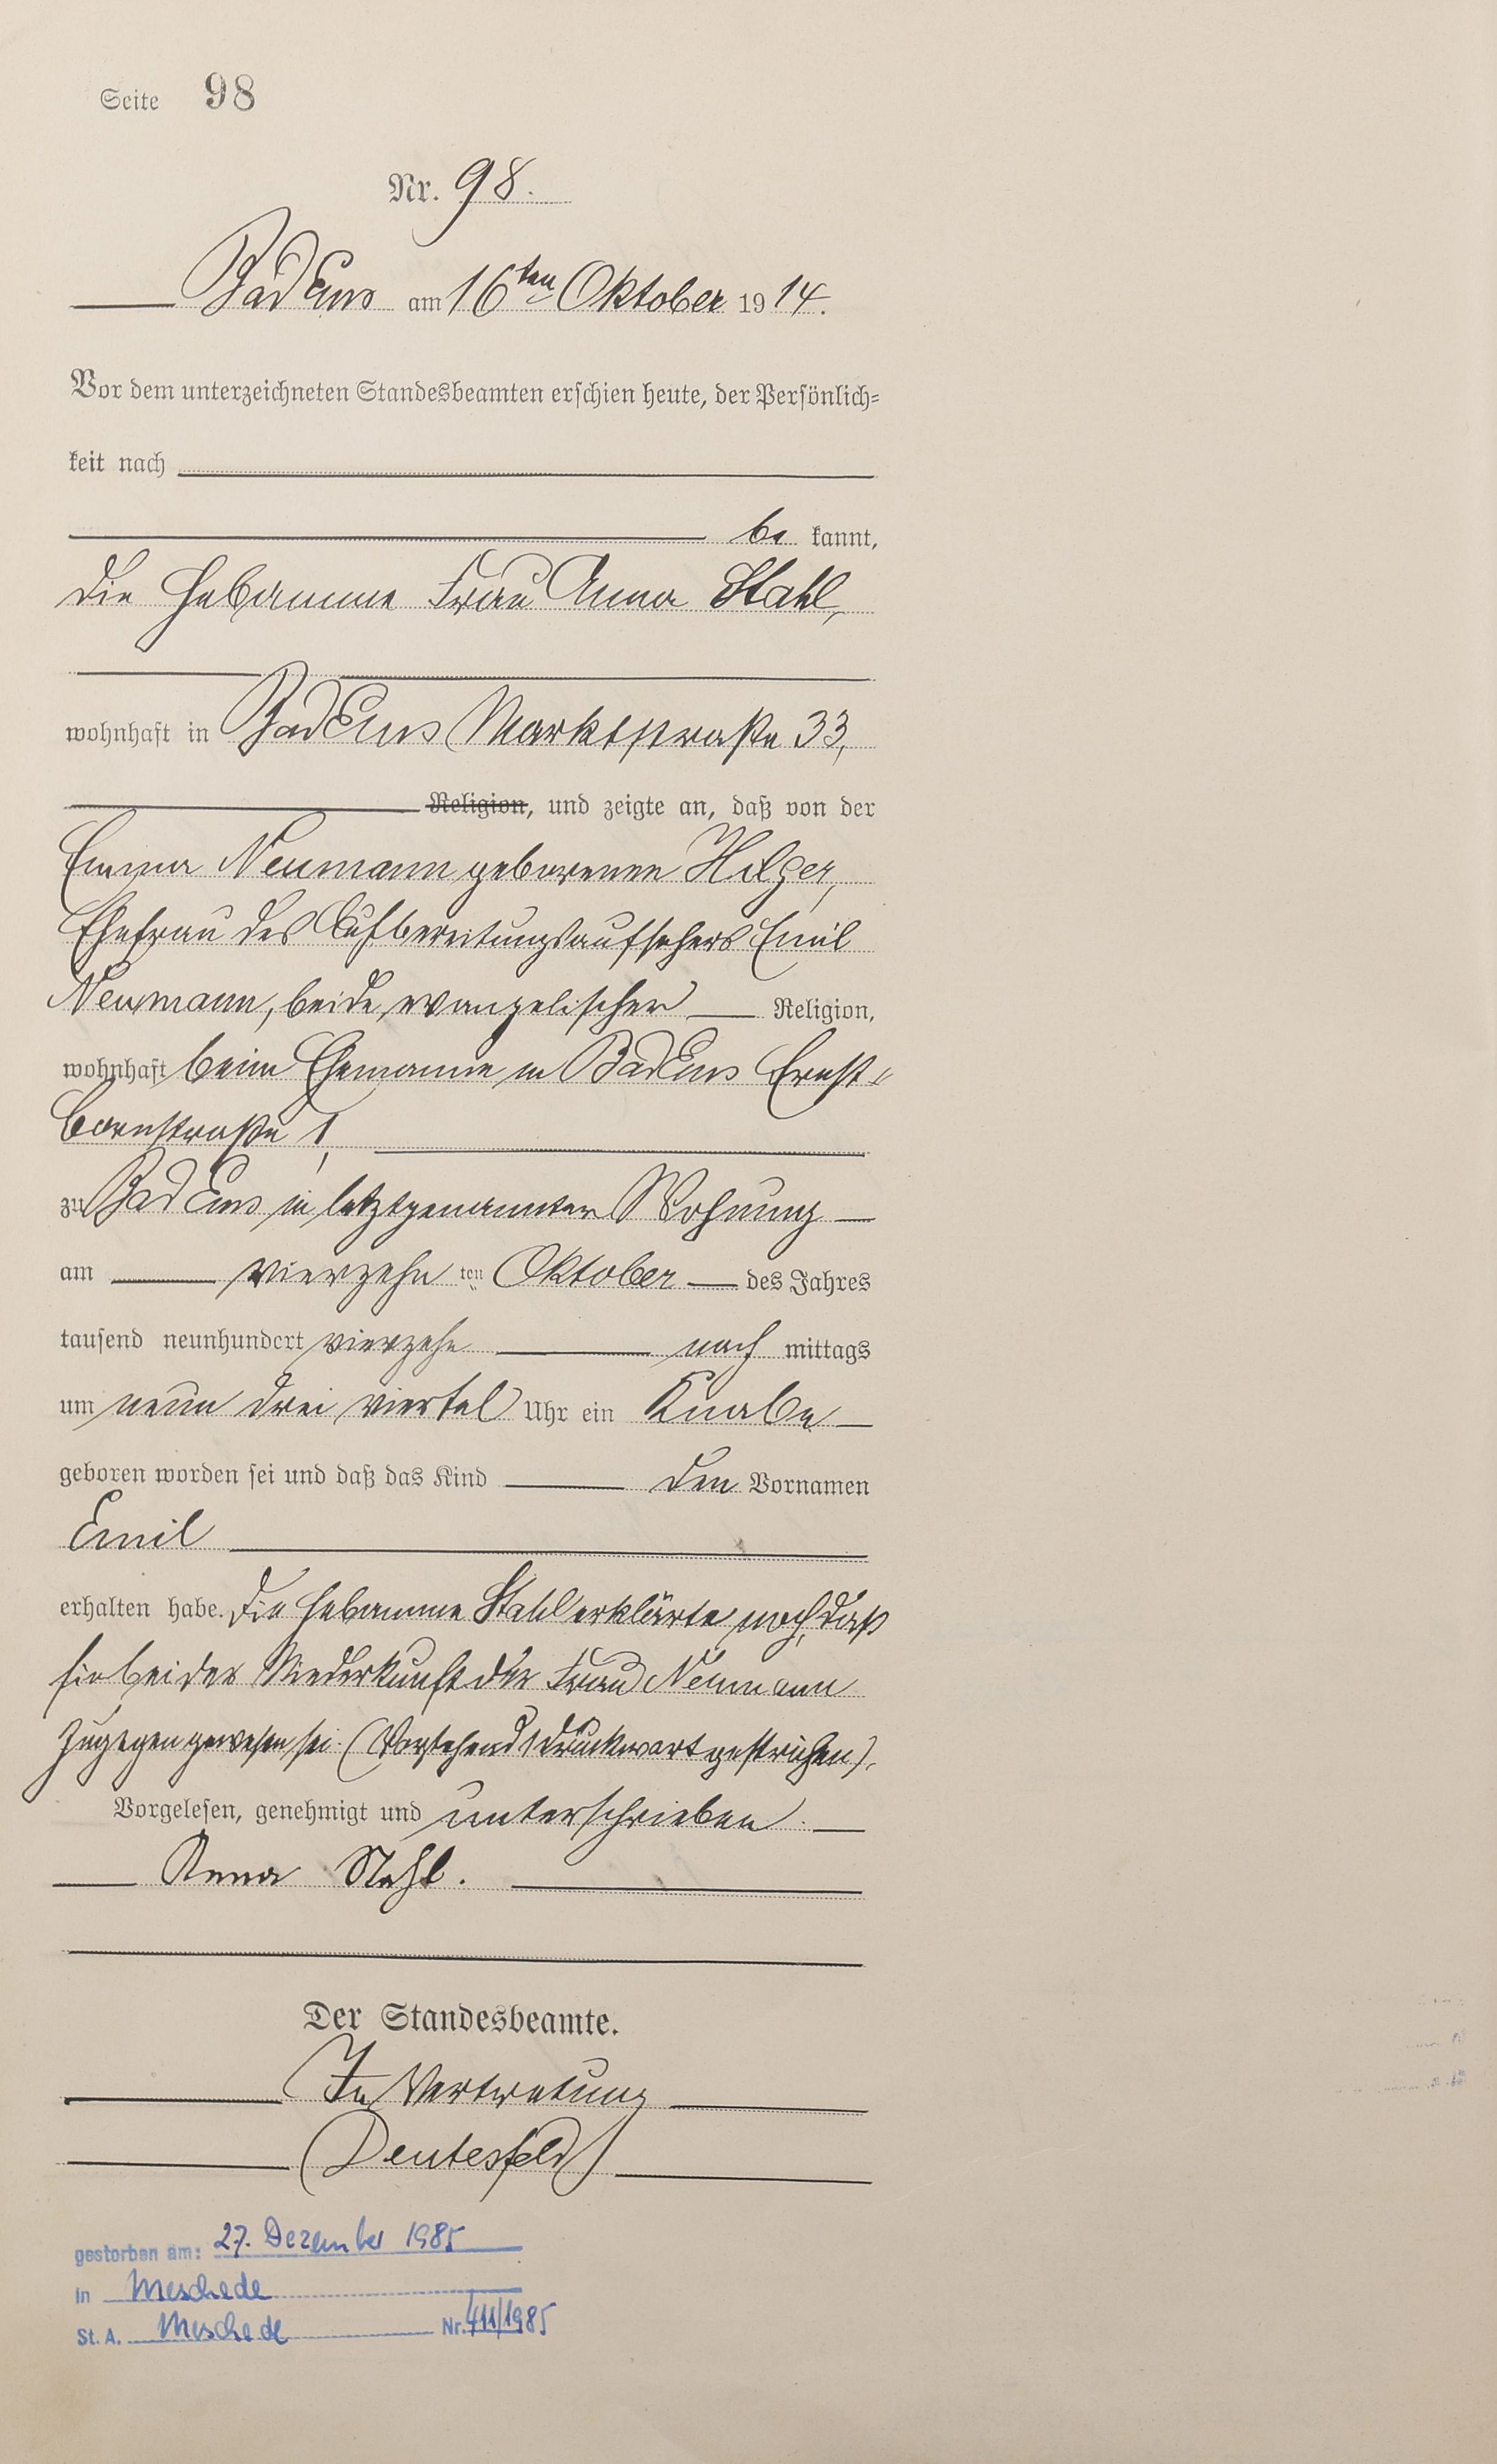 Seite 98
Nr. 98.
Bad Ems am 16ten Oktober 1914.
Vor dem unterzeichneten Standesbeamten erschien heute, der Persönlich=
keit nach
be kannt,
die Hebamme Frau Anna Stahl,
wohnhaft in Bad Ems Marktstraße 33,
Religion, und zeigte an, daß von der
Emma Neumann geborenen Hilger,
Ehefrau des Aufbereitungsaufsehers Emil
Neumann, beide evangelischer Religion,
wohnhaft beim Ehemanne in Bad Ems Ernst=
bornstraße 1,
zu Bad Ems in letztgenannter Wohnung
am vierzehn ten Oktober des Jahres
tausend neunhundert vierzehn nach mittags
um neun drei viertel Uhr ein Knabe
geboren worden sei und daß das Kind den Vornamen
Emil
erhalten habe. Die Hebamme Stahl erklärte noch, daß
sie bei der Niederkunft der Frau Neumann
zugegen gewesen sei. (Vorstehend 1 Druckwort gestrichen).
Vorgelesen, genehmigt und unterschrieben.
Anna Stahl.
Der Standesbeamte.
In Vertretung
Deutesfeld
gestorben am: 27. Dezember 1985
in Meschede
St. A. Meschede Nr. 411/1985